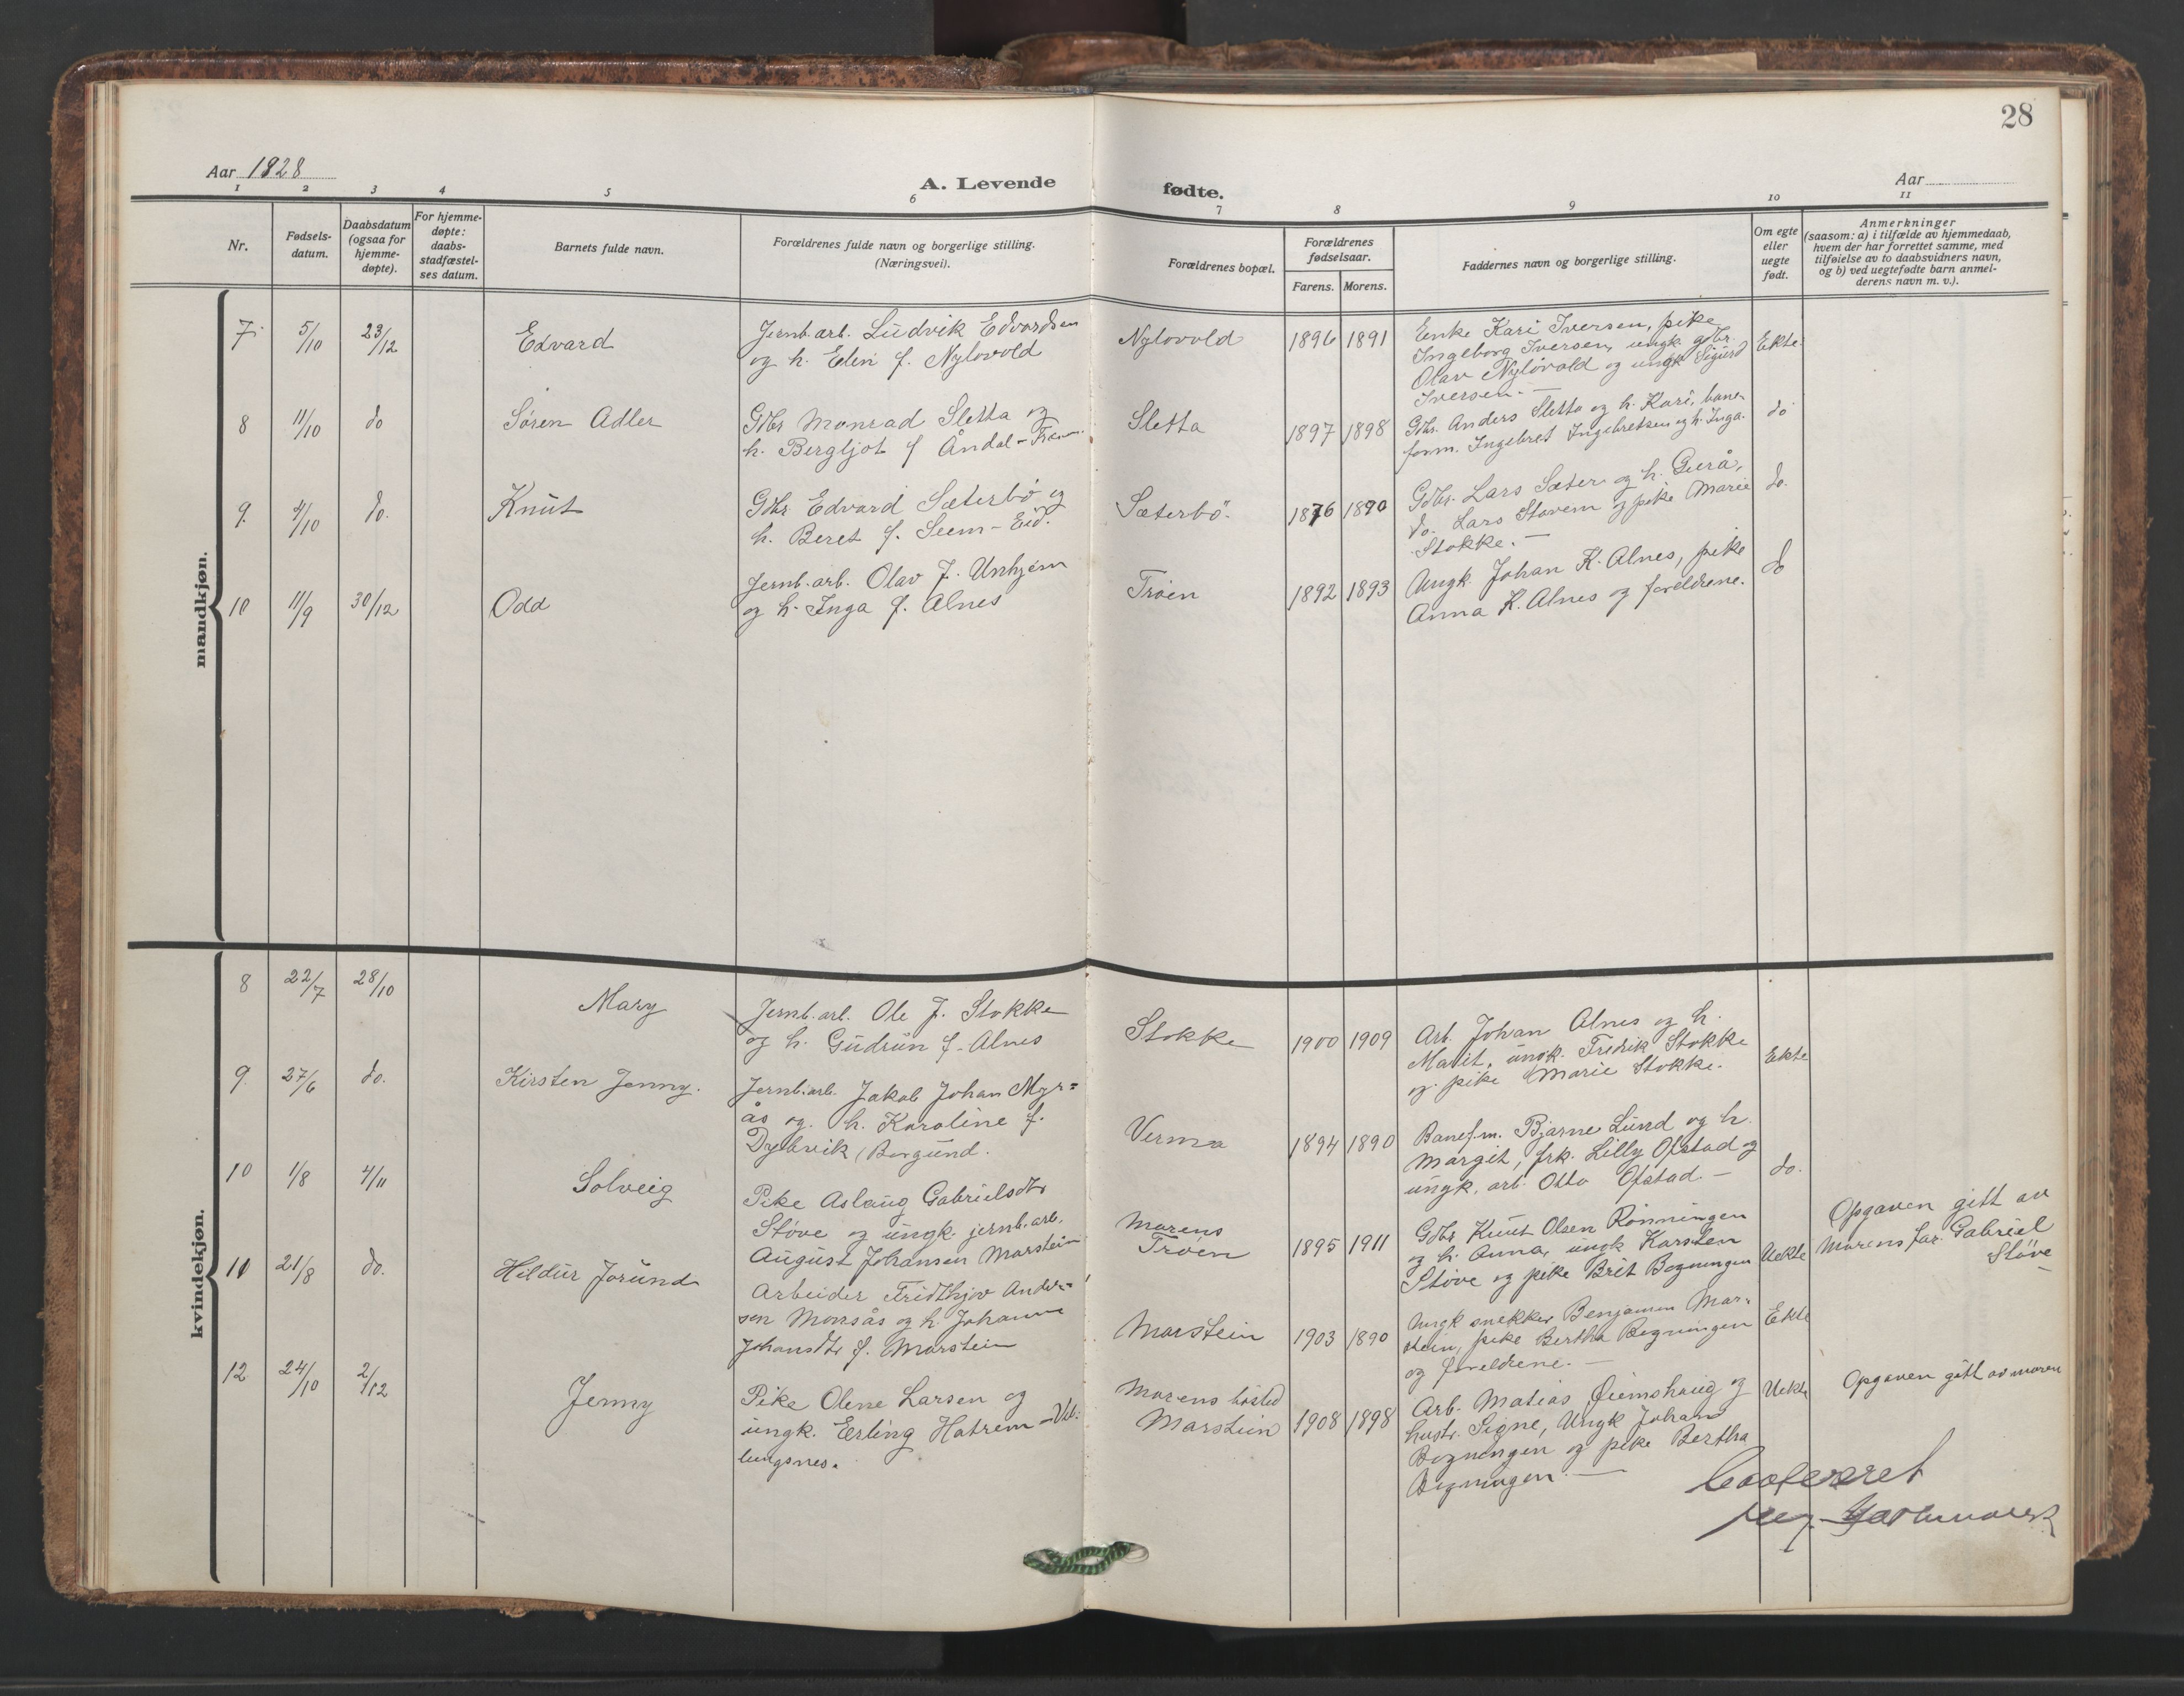 28
Aar 1928
A. Levende fødte.
Aar
1 2 3 4 5 6 7 8 9 10 11
Nr.
Fødsels-
datum.
Daabsdatum
(ogsaa for
hjemme-
døpte).
For hjemme-
døpte:
daabs-
stadfæstel-
ses datum.
Barnets fulde navn.
Forældrenes fulde navn og borgerlige stilling.
(Næringsvei).
Forældrenes bopæl.
Forældrenes
fødselsaar.
Farens. Morens.
Faddernes navn og borgerlige stilling.
Om egte
eller
uegte
født.
Anmerkninger
(saasom: a) i tilfælde av hjemmedaab,
hvem der har forrettet samme, med
tilføielse av to daabsvidners navn,
og b) ved uegtefødte barn anmel-
derens navn m. v.).
mandkjøn.
7. 5/10 23/12 Edvard
Jernb.arb. Ludvik Edvardsen
og h. Elen f. Nylovold
Nylovold 1896 1891
Enke Kari Iversen, pike
Ingeborg Iversen, ungk. gbr.
Olav Nylovold og ungk Sigurd
Iversen. —
Ekte.
8 11/10 do Søren Adler
Gdbr Monrad Sletta og
h. Bergljot f Åndal - Fræn.
Sletta 1897 1898
Gdbr. Anders Sletta og h. Kari, bane-
form. Ingebret Ingebretsen og h. Inga.
do
9. 4/10 do. Knut
Gdbr Edvard Sæterbö og
h. Beret f. Seem - Eid.
Sæterbö. 1876 1890
Gdbr. Lars Sæter og h. Gurå,
do. Lars Stavem og pike Marie
Stokke. —
do.
10 11/9 30/12 Odd
Jernb.arb. Olav J. Unhjem
og h. Inga f. Alnes
Trøen 1892 1893
Ungk. Johan K. Alnes, pike
Anna K. Alnes og foreldrene.
do
kvindekjøn.
8 22/7 28/10 Mary
Jernb.arb. Ole J. Stokke
og h. Gudrun f. Alnes
Stokke 1900 1909
Arb. Johan Alnes og h.
Marit, ungk. Fredrik Stokke
og pike Marie Stokke.
Ekte
9. 27/6 do. Kirsten Jenny.
Jernb.arb. Jakob Johan Myr=
ås og h. Karoline f.
Dybvik (Borgund.
Verma 1894 1890
Banef.m. Bjarne Lund og h.
Margit, frk. Lilly Ofstad og
ungk. arb. Otto Ofstad —
do.
10 1/8 4/11 Solveig
Pike Aslaug Gabrielsdtr
Støve og ungk. jernb.arb.
August Johansen Marstein
Morens
Trøen 1895 1911
Gdbr Knut Olsen Rönningen
og h. Anna, ungk Karsten
Støve og pike Brit Bogningen
Uekte
Opgaven gitt av
Morens far. Gabriel
Støve
11 21/8 do. Hildur Jorund
Arbeider Fridthjov Ander=
sen Monsås og h. Johanne
Johansdtr f. Marstein
Marstein 1903 1890
Ungk snekker Benjamin Mar-
stein, pike Bertha Bogningen
og foreldrene. —
Ekte
12 24/10 2/12 Jenny
Pike Olene Larsen og
ungk. Erling Hatrem - Veb-
lungsnes.
Morens bosted
Marstein 1908 1898
Arb. Matias Øiemshaug og
hustr. Signe, Ungk Johan
Bogningen og pike Bertha
Bogningen. —
Uekte
Opgaven gitt av moren